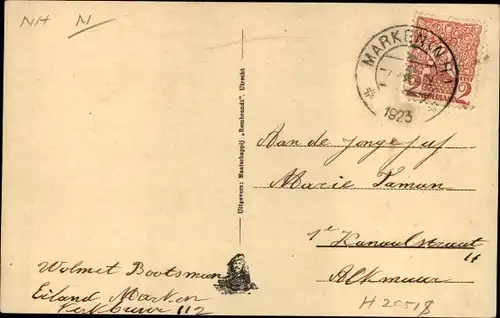 NH N
MARKEN (N.H.)
1923
2 2
Uitgevers: Maatschappij „Rembrandt", Utrecht
Aan de Jonge Juf
Marie Taman
1e Kanaalstraat
Alkmaar
Wolmet Bootsman
Eiland Marken
Kerkbuurt 112
H 20518